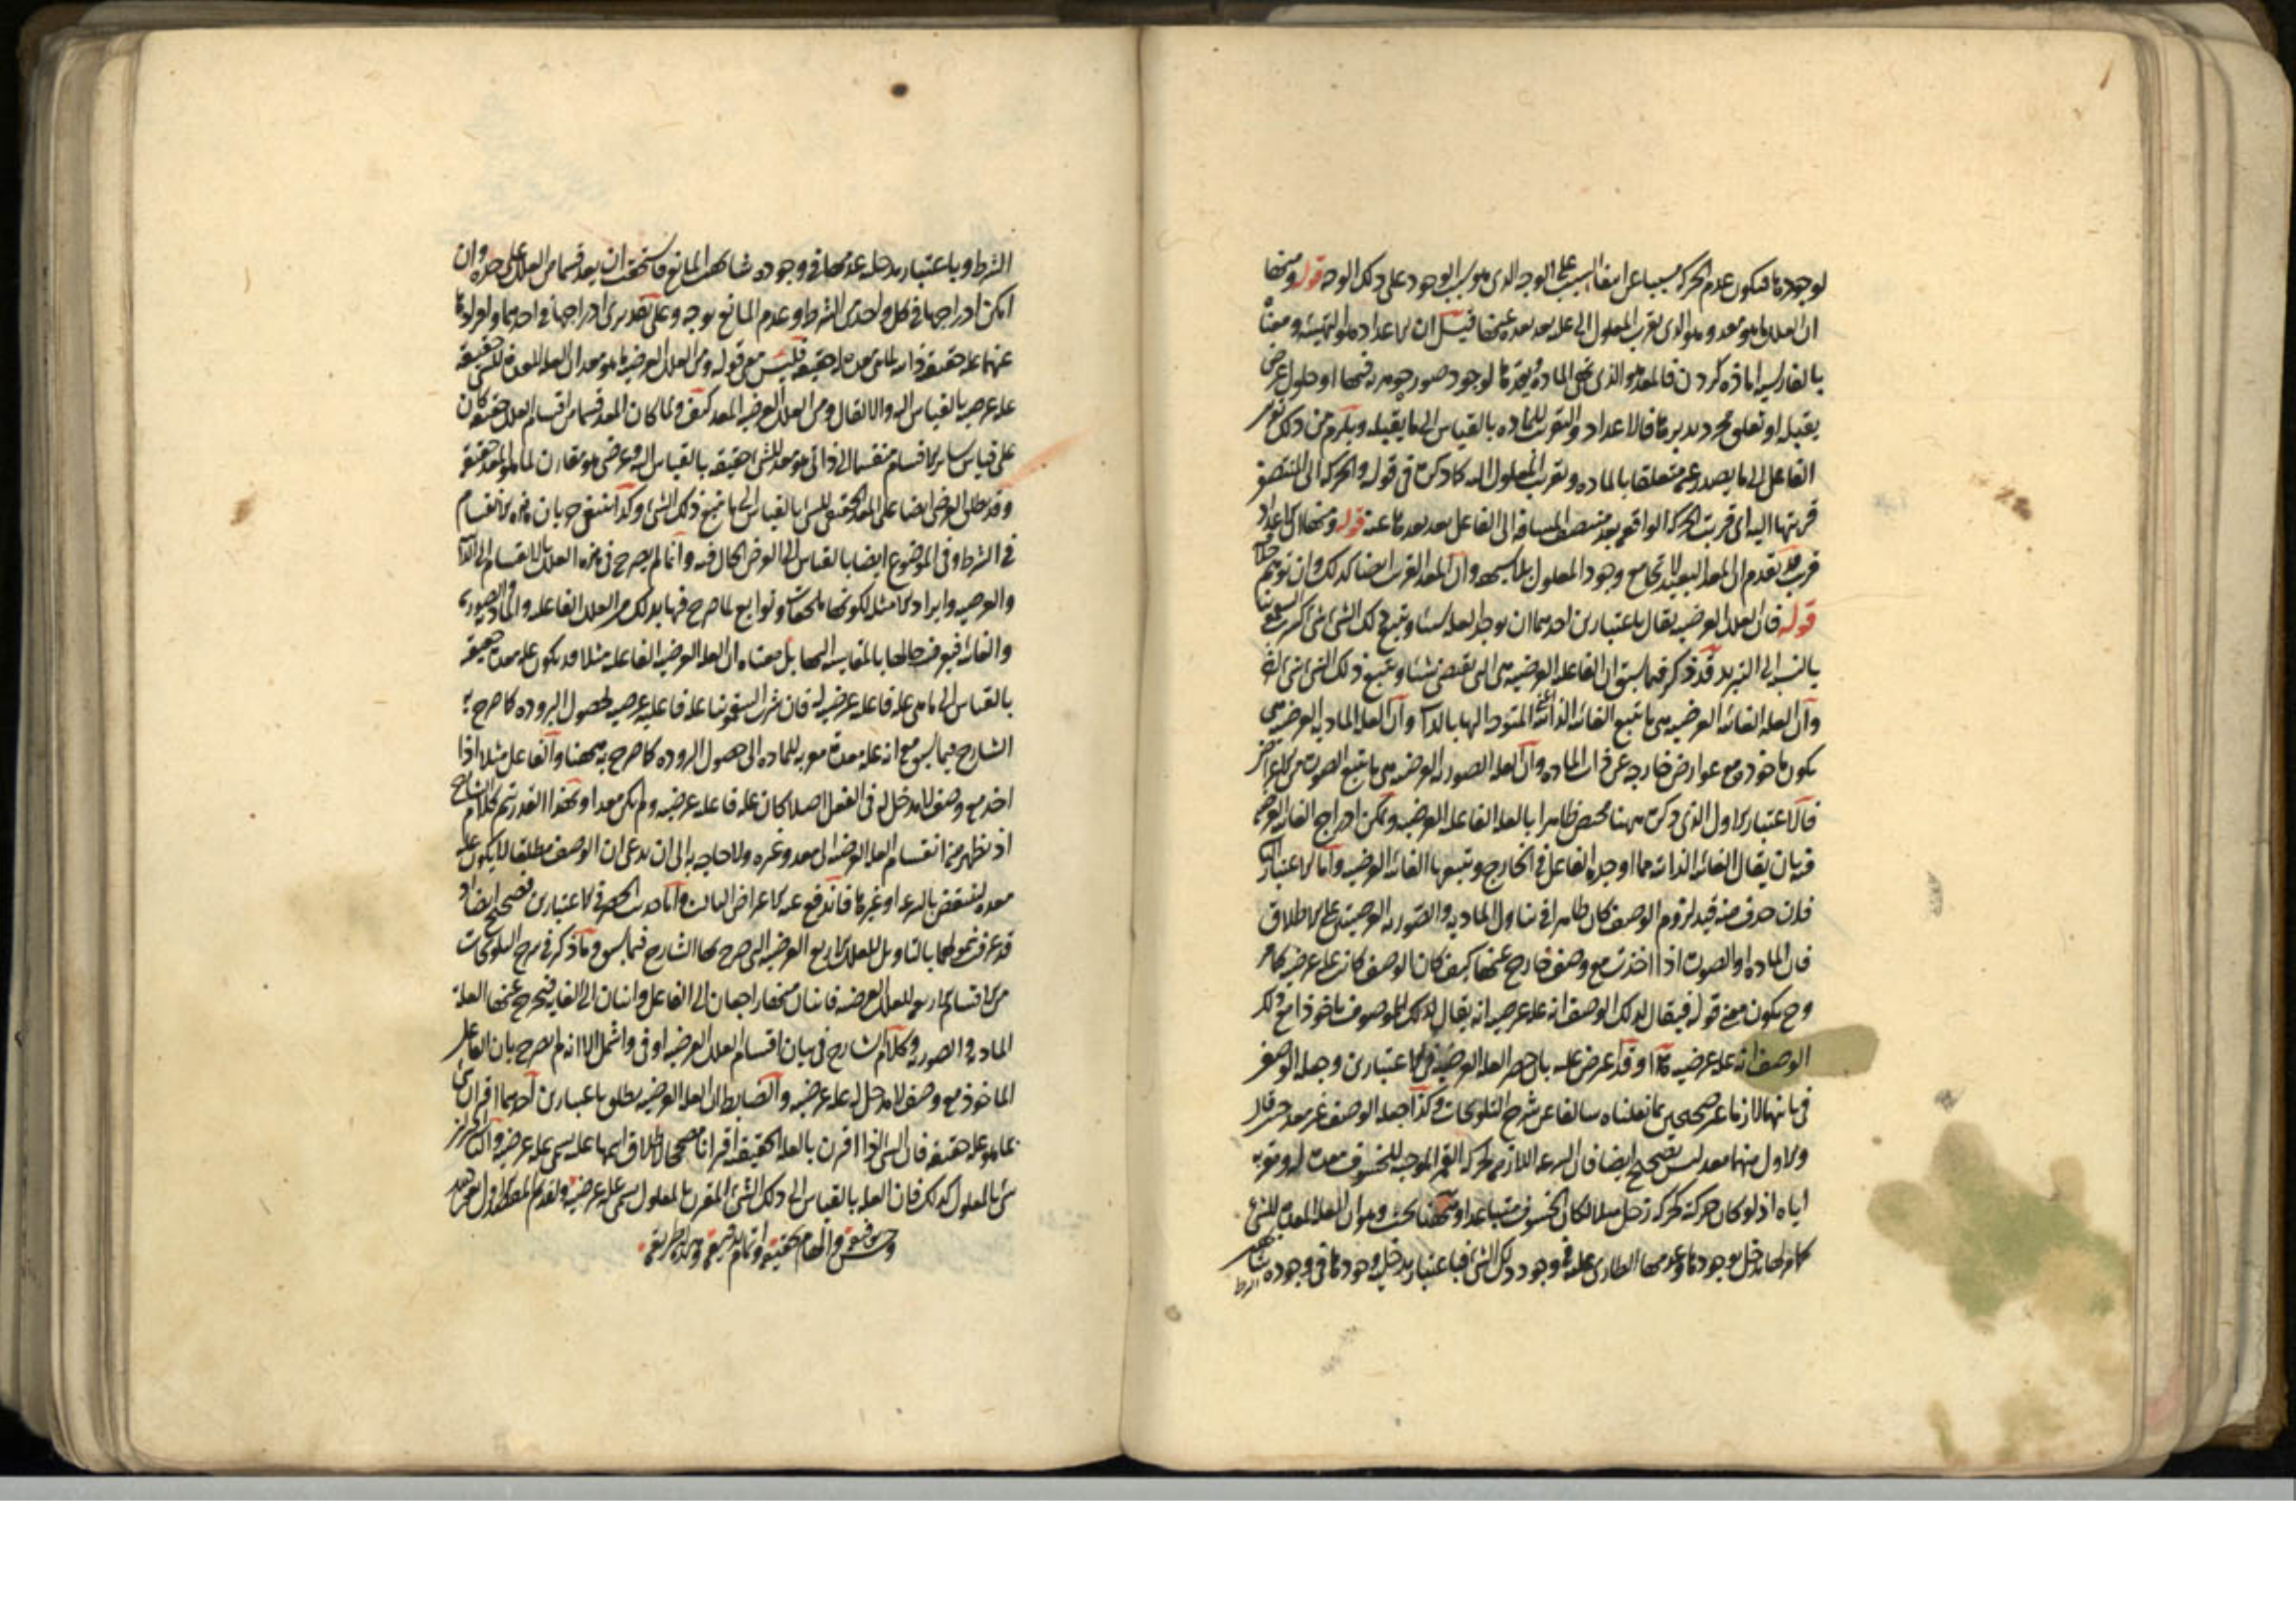 لوجودها فيكون عدم الحركة مسببا عن انتفاء السبب على الوجه الذى هو سبب الوجود على ذلك الوجه قوله ومنها
ان العلل ما هو معد وهو الذى يقرب المعلول الى علته بعد بعده عنها قيل ان الاعداد هو التهيئة ومعناه
بالفارسية اماده كردن فالمعد هو الذى يهيئ المادة لوجود صورة جوهرية فيها او حلول عرض
يقبله او تعلق مجرد يدبرها فالاعداد والتقريب للمادة بالقياس الى ما يقبله ويلزم من ذلك
الفاعل الى ما يصدر عنه متعلقا بالمادة وتقريب المعلول اليه كما ذكره فى قوله والحركة الى المنتصف
قربتها اليه اى قربت الحركة الواقعة بعد منتصف المسافة الى الفاعل بعد بعدها عنه قوله
قريب قد تقدم ان المعد البعيد لا يجامع وجود المعلول بلا شبهة وان المعد القريب ايضا كذلك وان توهم
قوله فان العلة العرضية يقال باعتبارين احدهما ان يوجد العلة شيئا ويتبع ذلك الشئ شئ اخر
بالنسبة الى التبريد قد ذكر فيما سبق ان الفاعلة العرضية هى التى تقتضى شيئا ويتبع ذلك الشئ شئ
وان العلة الغائية العرضية هى ما يتبع الغاية الذاتية المتوجه اليها بالذات وان العلة المادية العرضية هى
يكون ماخوذة مع عوارض خارجة عن ذات المادة وان العلة الصورية العرضية هى ما يتبع الصورة من الاعراض
فالاعتبار الاول الذى ذكره ههنا مختص ظاهرا بالعلة الفاعلة العرضية ويمكن ادراج الغاية العرضية
فيه بان يقال الغاية الذاتية مما اوجده الفاعل فى الخارج ويتبعها الغاية العرضية واما الاعتبار الثانى
فلان حذف منه قيد لزوم الوصف كان ظاهرا فى تناول المادية والصورية العرضيتين على الاطلاق
فان المادة او الصورة اذا اخذت مع وصف خارج عنها كيف كان الوصف كانت علة عرضية كما مر
وح يكون معنى قوله فيقال لذلك الوصف انه علة عرضية انه يقال لذلك الموصوف ماخوذا مع ذلك
الوصف انه علة عرضية وقد اعترض عليه بان حصر العلة العرضية فى الاعتبارين وجعل الوصف
فى ثانيهما لازما غير صحيحين بما نقلناه سالفا عن شرح التلويحات وكذا جعل الوصف غير معد
والاول منهما معد ليس بصحيح ايضا فان السرعة اللازمة لحركة القمر الموجبة للخسوف معدة له ومقربة
اياه اذ لو كان حركته كحركة زحل مثلا لكان الخسوف متباعدا وههنا بحث وهو ان العلة المعدة للشئ
كما مر لها مدخل بوجودها وعدمها الطارى عليه فى وجود ذلك الشئ فباعتبار مدخلية وجودها فى وجوده
الشرط
الشرط وباعتبار مدخلية عدمها فى وجوده شابهت المانع فاستحقت ان يعد قسما من العلل على حدة وان
امكن ادراجها فى كل واحد من الشرط وعدم المانع بوجه وعلى تقديرى ادراجها فى احدهما وافرادها
عنهما علة حقيقة ذاتية لما هى معدة له حقيقة فليس معنى قوله ومن العلل العرضية ما هو معد ان العلة المعدة للشئ حقيقة
علة عرضية بالقياس اليه والا لقال ومن العلل العرضية المعد كيف ولما كان المعد قسما من اقسام العلل حقيقة كان
على قياس سائر الاقسام منقسما الى ذاتى هو معد للشئ حقيقة بالقياس اليه وعرضى هو مقارن لما هو المعد حقيقة
وقد يطلق العرضى ايضا على المعد الحقيقى للشئ بالقياس الى ما يتبع ذلك الشئ وكذا ينبغى جريان هذه الانقسام
فى الشرط وفى الموضوع ايضا بالقياس الى العرض الحال فيه وانما لم يصرح فى هذه العلل بالانقسام الى الذاتية
والعرضية وايراد الامثلة لكونها ملحقات وتوابع لما صرح فيها بذلك من العلل الفاعلة والمادية والصورية
والغائية فيعرف حالها بالمقايسة اليها بل معناه ان العلة العرضية الفاعلة مثلا قد يكون علة معدة حقيقة
بالقياس الى ما هى علة فاعلة عرضية له فان شرب السقمونيا علة فاعلية عرضية لحصول البرودة كما صرح به
الشارح فيما سبق مع انه علة معدة مقربة للمادة الى حصول البرودة كما صرح به ههنا والفاعل مثلا اذا
اخذ مع وصف لا مدخل له فى الفعل اصلا كان علة فاعلة عرضية ولم يكن معدا وبهذا القدر يتم كلام الشارح
اذ يظهر منه انقسام العلة العرضية الى معد وغيره ولا حاجة به الى ان يدعى ان الوصف مطلقا لا يكون علة
معدة لينتقض بالسرعة او غيرها فاندفع عنه الاعتراض الثالث واما حديث الحصر فى الاعتبارين فصحيح ايضا
قد عرفت شمولهما بالتاويل للعلل الاربع العرضية التى صرح بها الشارح فيما سبق وما ذكره فى شرح التلويحات
من الاقسام الاربعة للعلل العرضية فاثنان منها راجعان الى الفاعل واثنان الى الغاية فيخرج عنها العلة
المادية والصورية وكلام الشارح فى بيان اقسام العلل العرضية اوفى واشمل الا انه لم يصرح بان الفاعل
الماخوذ مع وصف لا مدخل له علة عرضية والضابط ان العلة العرضية يطلق باعتبارين احدهما اقتران شئ
بما هو علة حقيقة فان الشئ اذا اقترن بالعلة الحقيقية اقترانا مصححا لاطلاق اسمها عليه سمى علة عرضية والثانى اقتران
شئ بالمعلول كذلك فان العلة بالقياس الى ذلك الشئ المقترن بالمعلول سمى علة عرضية